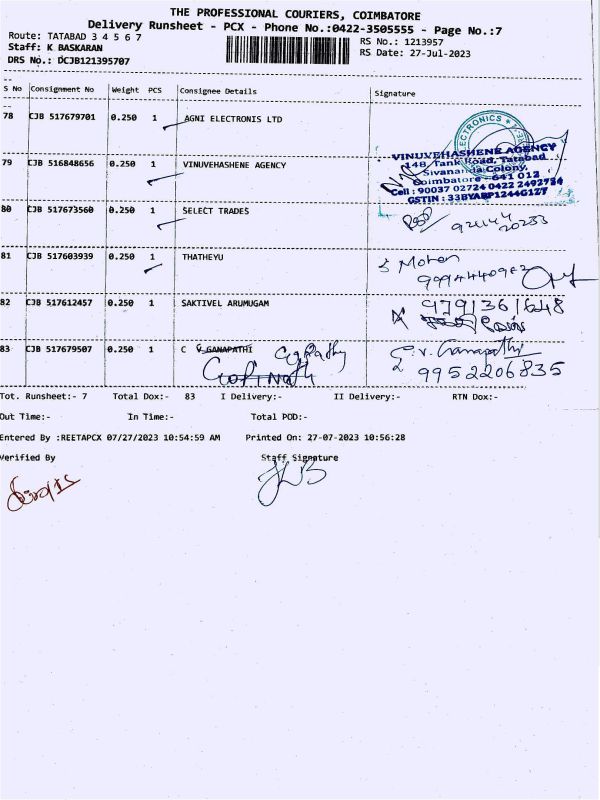 THE PROFESSIONAL COURIERS, COIMBATORE
Delivery Runsheet - PCX - Phone No.:0422-3505555 - Page No.:7
Route: TATABAD 3 4 5 6 7
RS No.: 1213957
Staff: K BASKARAN
RS Date: 27-Jul-2023
DRS No.: DCJB121395707
S No Consignment No Weight PCS Consignee Details Signature
78 CJB 517679701 0.250 1 AGNI ELECTRONIS LTD
ELECTRONICS
79 CJB 516848656 0.250 1 VINUVEHASHENE AGENCY
VINUVEHASHENE AGENCY
148, Tank Road, Tatabad
Sivananda Colony,
Coimbatore - 641 012
Cell : 90037 02724 0422 2492734
GSTIN : 33BYABP1244G1ZT
80 CJB 517673560 0.250 1 SELECT TRADES
81 CJB 517603939 0.250 1 THATHEYU
S Mohan
82 CJB 517612457 0.250 1 SAKTIVEL ARUMUGAM
9791361648
83 CJB 517679507 0.250 1 C V.GANAPATHI
Gopinath
G.V. Ganapathi
9952206835
Tot. Runsheet:- 7 Total Dox:- 83 I Delivery:- II Delivery:- RTN Dox:-
Out Time:- In Time:- Total POD:-
Entered By :REETAPCX 07/27/2023 10:54:59 AM Printed On: 27-07-2023 10:56:28
Verified By Staff Signature